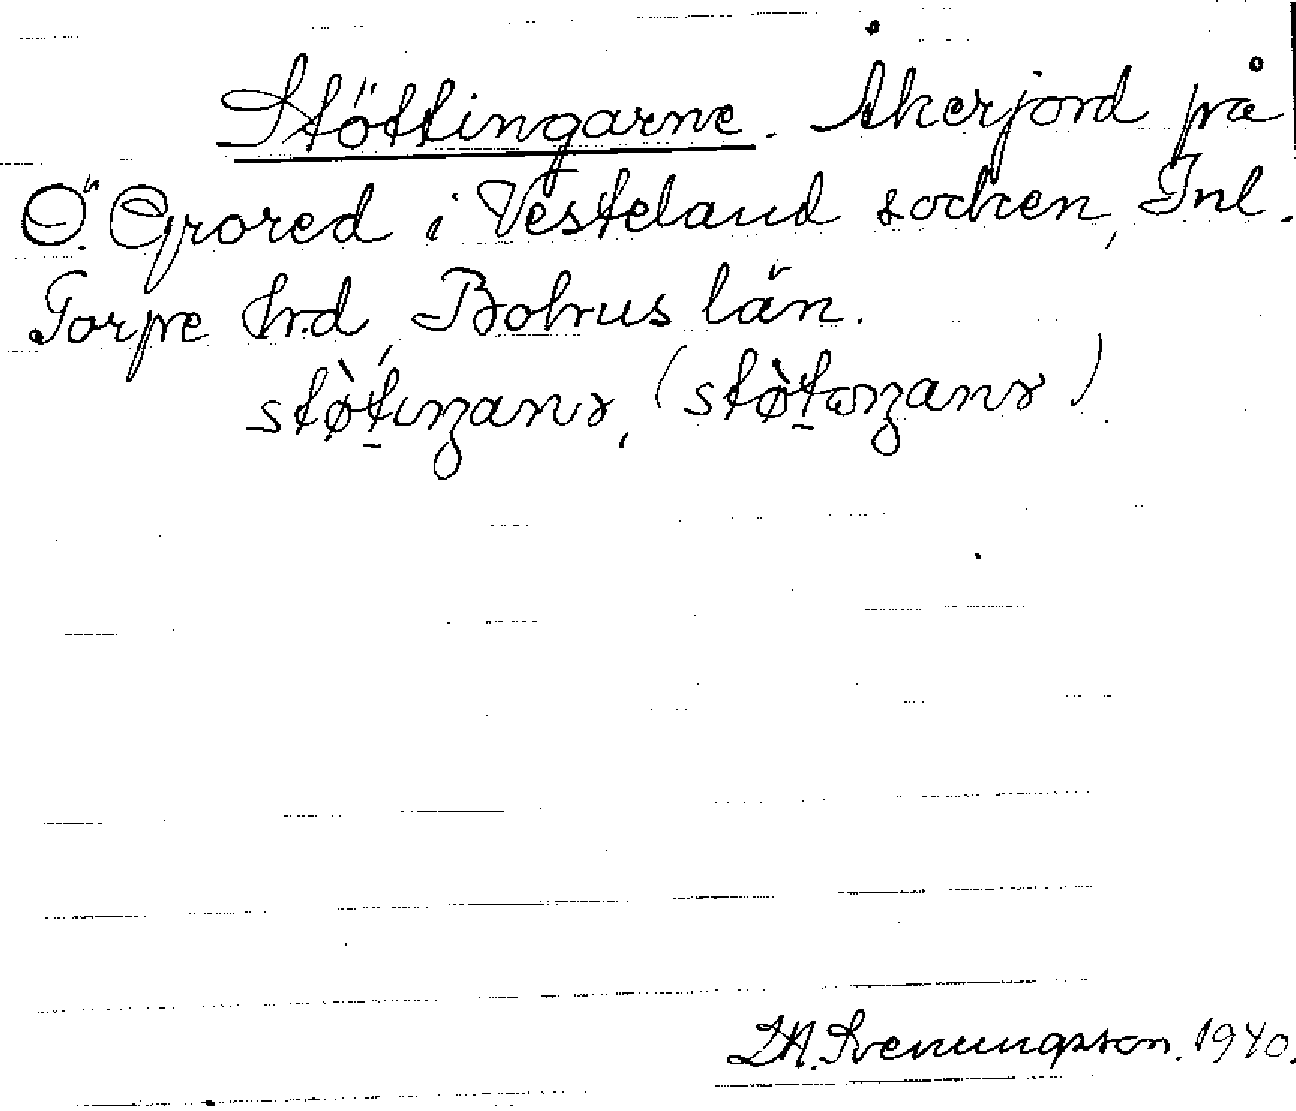 Stöttingarne. Åkerjord på
Ö. Grored i Vesteland socken, Inl.
Torpe hrd, Bohus län.
stø̀t́ıŋanɤ, (stø̀t́əŋanɤ)
Svenungsson. 1940.